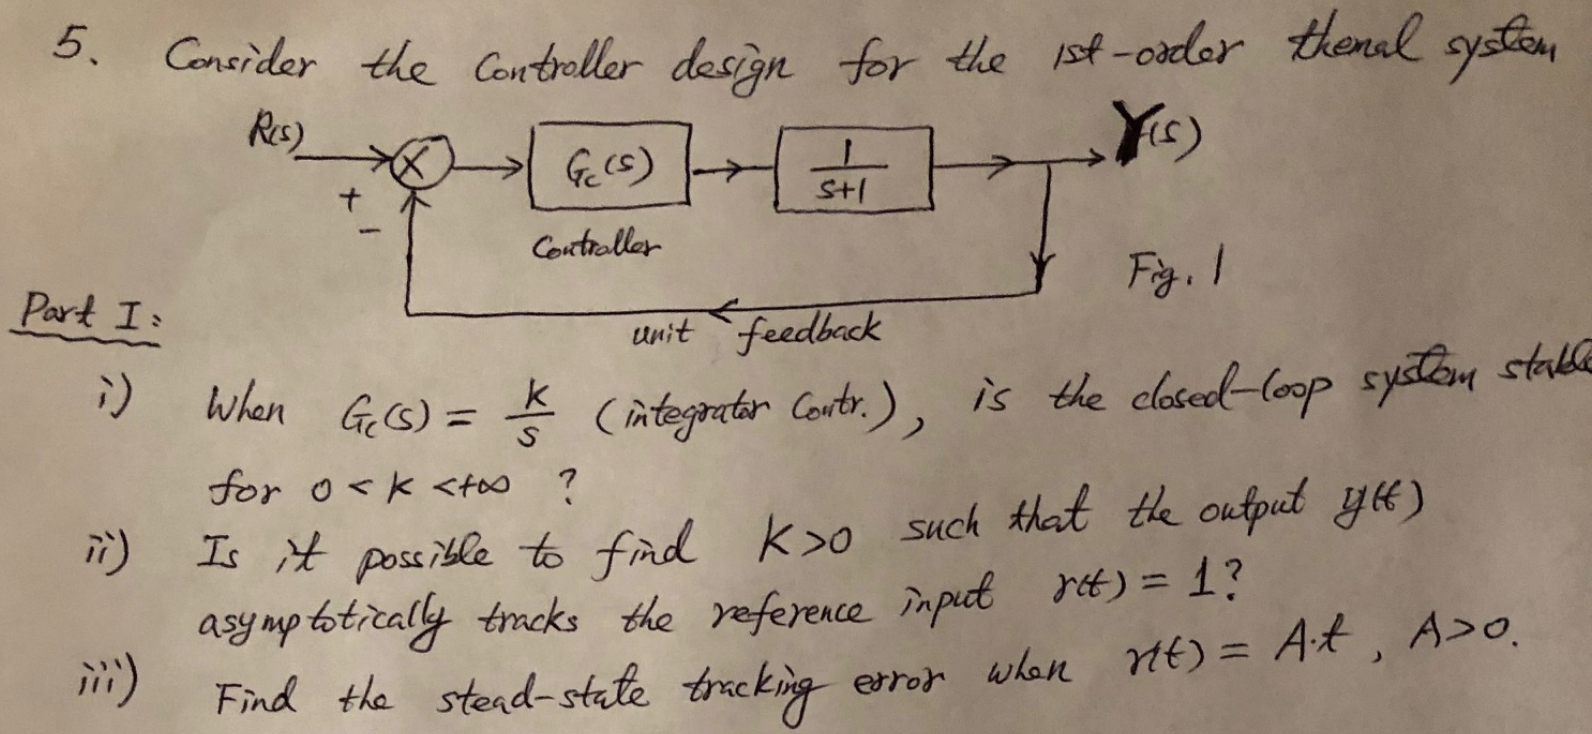 5. Consider the Controller design for the 1st-order themal system
R(s)
+
-
Gc(s)
Controller
1
s+1
Y(s)
Fig. 1
unit feedback
Part I:
i) When Gc(s) = K/s (integrator Contr.), is the closed-loop system stable
for 0 < K < +∞ ?
ii) Is it possible to find K>0 such that the output y(t)
asymptotically tracks the reference input r(t) = 1?
iii) Find the stead-state tracking error when r(t) = A·t, A>0.